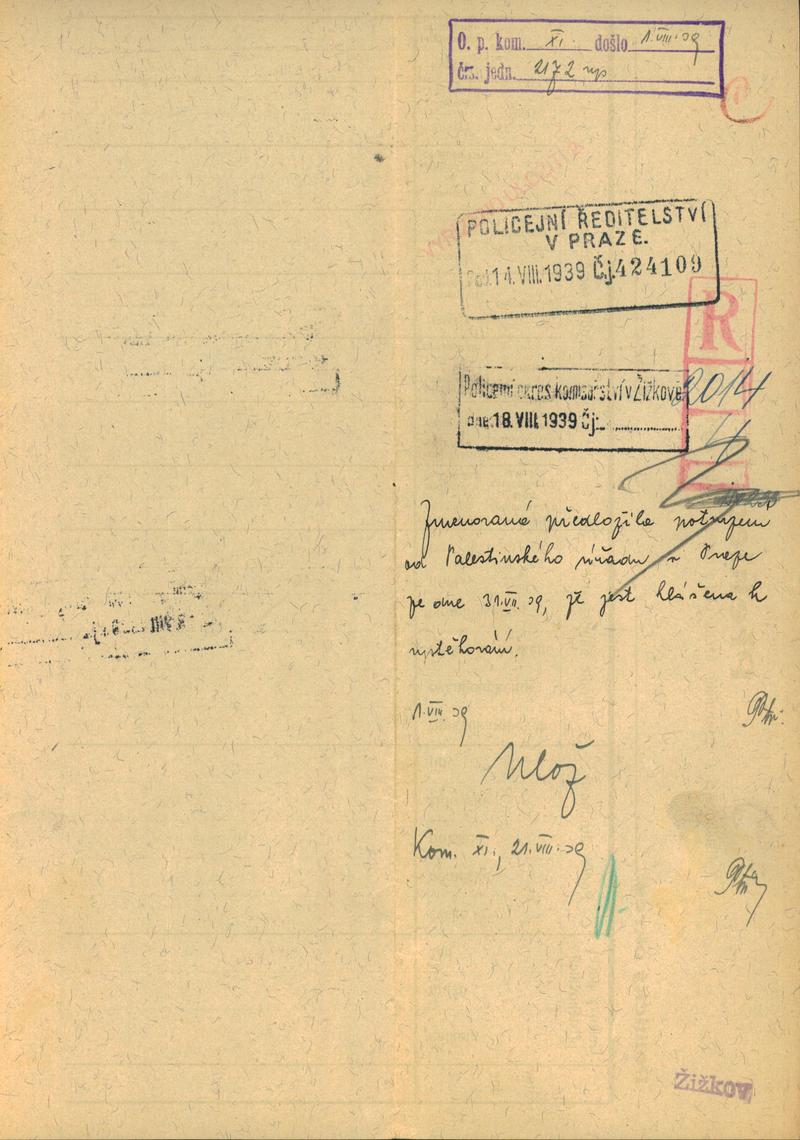 O. p. kom. XI. došlo 1.VIII.39
čís. jedn. 2172
POLICEJNÍ ŘEDITELSTVÍ
V PRAZE.
14.VIII.1939 Čj.424109
R
Policejní okres. komisařství v Žižkově
dne: 18.VIII.1939 Čj:
2014
4
Jmenovaná předložila potvrzení
od Palestinského úřadu v Praze
ze dne 31.VII.39, že jest hlášena k
vystěhování.
1.VIII.39
Ulož
Kom. XI., 21.VIII.39
Žižkov